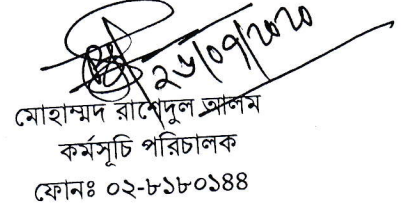 ২৬/০৭/২০২০
মোহাম্মদ রাশেদুল আলম
কর্মসূচি পরিচালক
ফোনঃ ০২-৮১৮০১৪৪